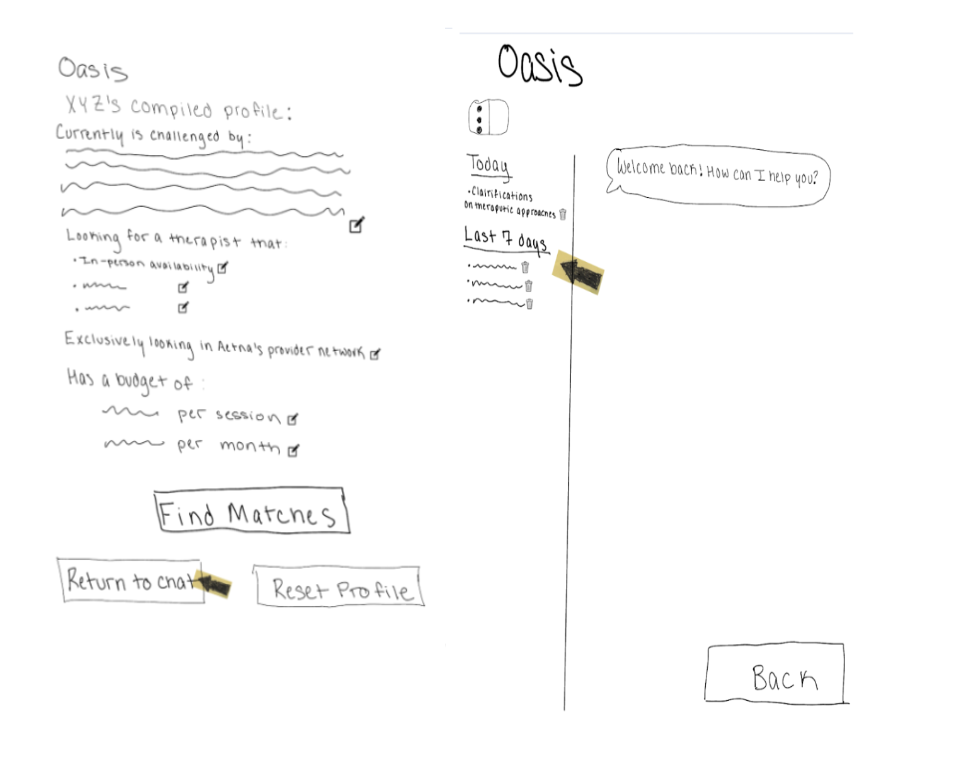 Oasis
XYZ's compiled profile:
Currently is challenged by:
Looking for a therapist that:
• In-person availability
Exclusively looking in Aetna's provider network
Has a budget of:
per session
per month
Find Matches
Return to chat
Reset Profile
Oasis
Today
• Clairifications
on theraputic approaches
Last 7 days
Welcome back! How can I help you?
Back